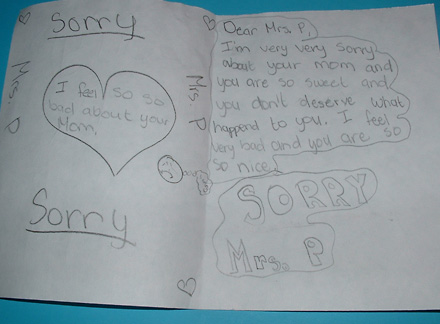 Sorry
Mrs. P
I feel so so
bad about your
Mom.
Sorry
Mrs. P
Dear Mrs. P,
I'm very very sorry
about your mom and
you are so sweet and
you don't deserve what
happend to you. I feel
very bad and you are so
so nice.
SORRY
Mrs. P